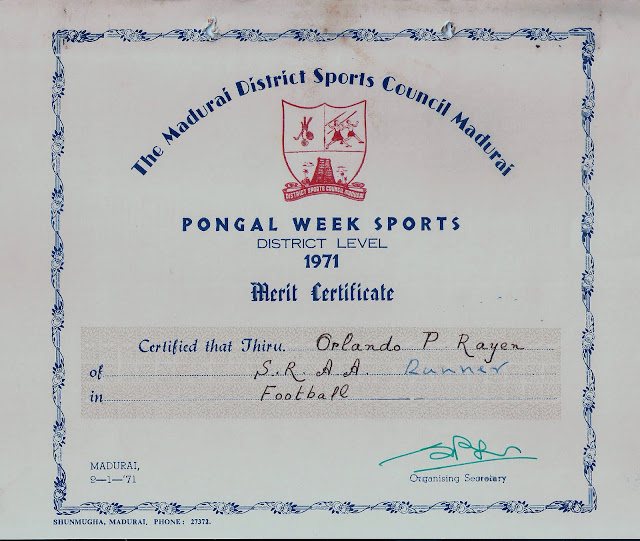 The Madurai District Sports Council Madurai
DISTRICT SPORTS COUNCIL MADURAI
PONGAL WEEK SPORTS
DISTRICT LEVEL
1971
Merit Certificate
Certified that Thiru. Orlando P Rayen
of S.R.A.A. Runner
in Football
MADURAI,
9—1—'71
Organising Secretary
SHUNMUGHA, MADURAI, PHONE: 27372.